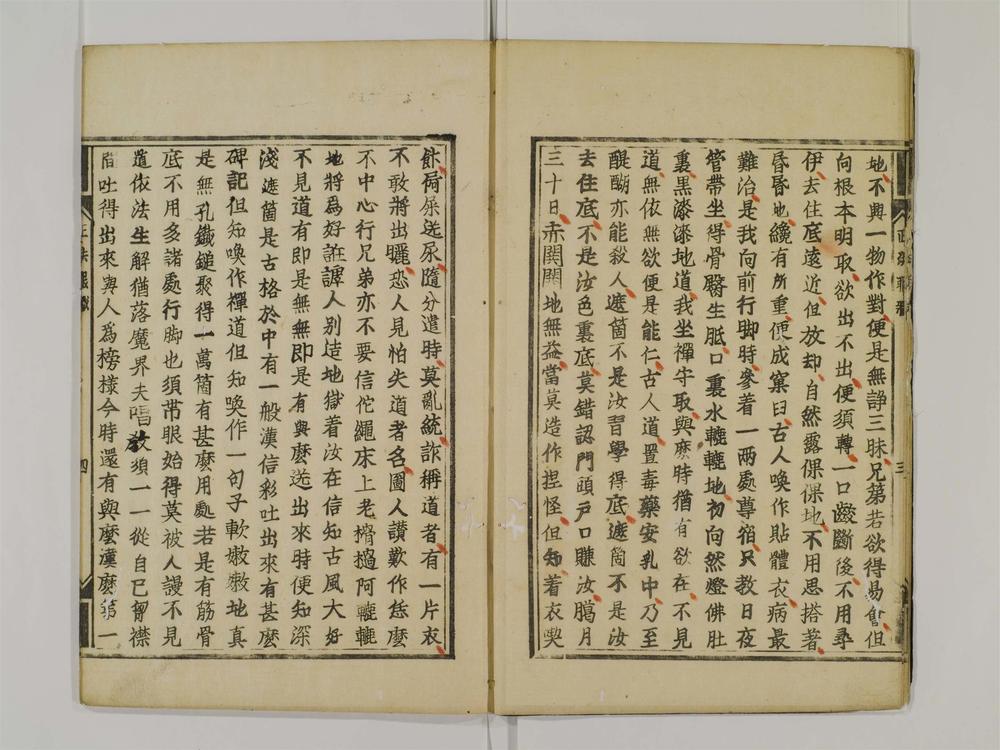 地不與一物作對便是無諍三昧兄弟若欲得易會但
向根本明取欲出不出便須轉一口齩斷後不用尋
伊去住底遠近但放却自然露倮倮地不用思搭著
昏昏地纔有所重便成窠臼古人喚作貼體衣病最
難治是我向前行脚時參着一兩處尊宿只教日夜
管帶坐得骨臀生胝口裏水漉漉地初向然燈佛肚
裏黑漆漆地道我坐禪守取與麼時猶有欲在不見
道無依無欲便是能仁古人道置毒藥安乳中乃至
醍醐亦能殺人遮箇不是汝習學得底遮箇不是汝
去住底不是汝色裏底莫錯認門頭戸口賺汝臈月
三十日赤閧閧地無益當莫造作揑怪但知着衣喫
飯屙屎送尿隨分遣時莫亂統詐稱道者有一片衣
不敢將出曬恐人見怕失道者名圖人讃歎作恁麼
不中心行兄弟亦不要信佗繩床上老榾檛阿轆轆
地將爲好誑謼人別造地獄着汝在信知古風大好
不見道有即是無無即是有與麼送出來時便知深
淺遮箇是古格於中有一般漢信彩吐出來有甚麼
碑記但知喚作禪道但知喚作一句子軟嫩嫩地真
是無孔鐵鎚聚得一萬箇有甚麼用處若是有筋骨
底不用多諸處行脚也須帶眼始得莫被人謾不見
道依法生解猶落魔界夫唱敎須一一從自已胷襟
間吐得出來與人爲榜樣今時還有與麼漢麼第一
正法眼藏
三
正法眼藏
四